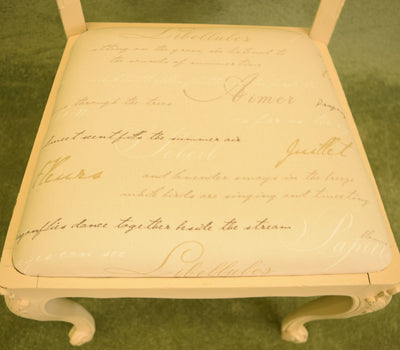 Libellules
sitting on the grass she listened to
the sounds of summertime
Aimer
through the trees
sweet scent fills the summer air
Juillet
Soleil
fleurs
and lavender sways in the breeze
while birds are singing and tweeting
dragonflies dance together beside the stream
Papillon
eyes can see
Libellules